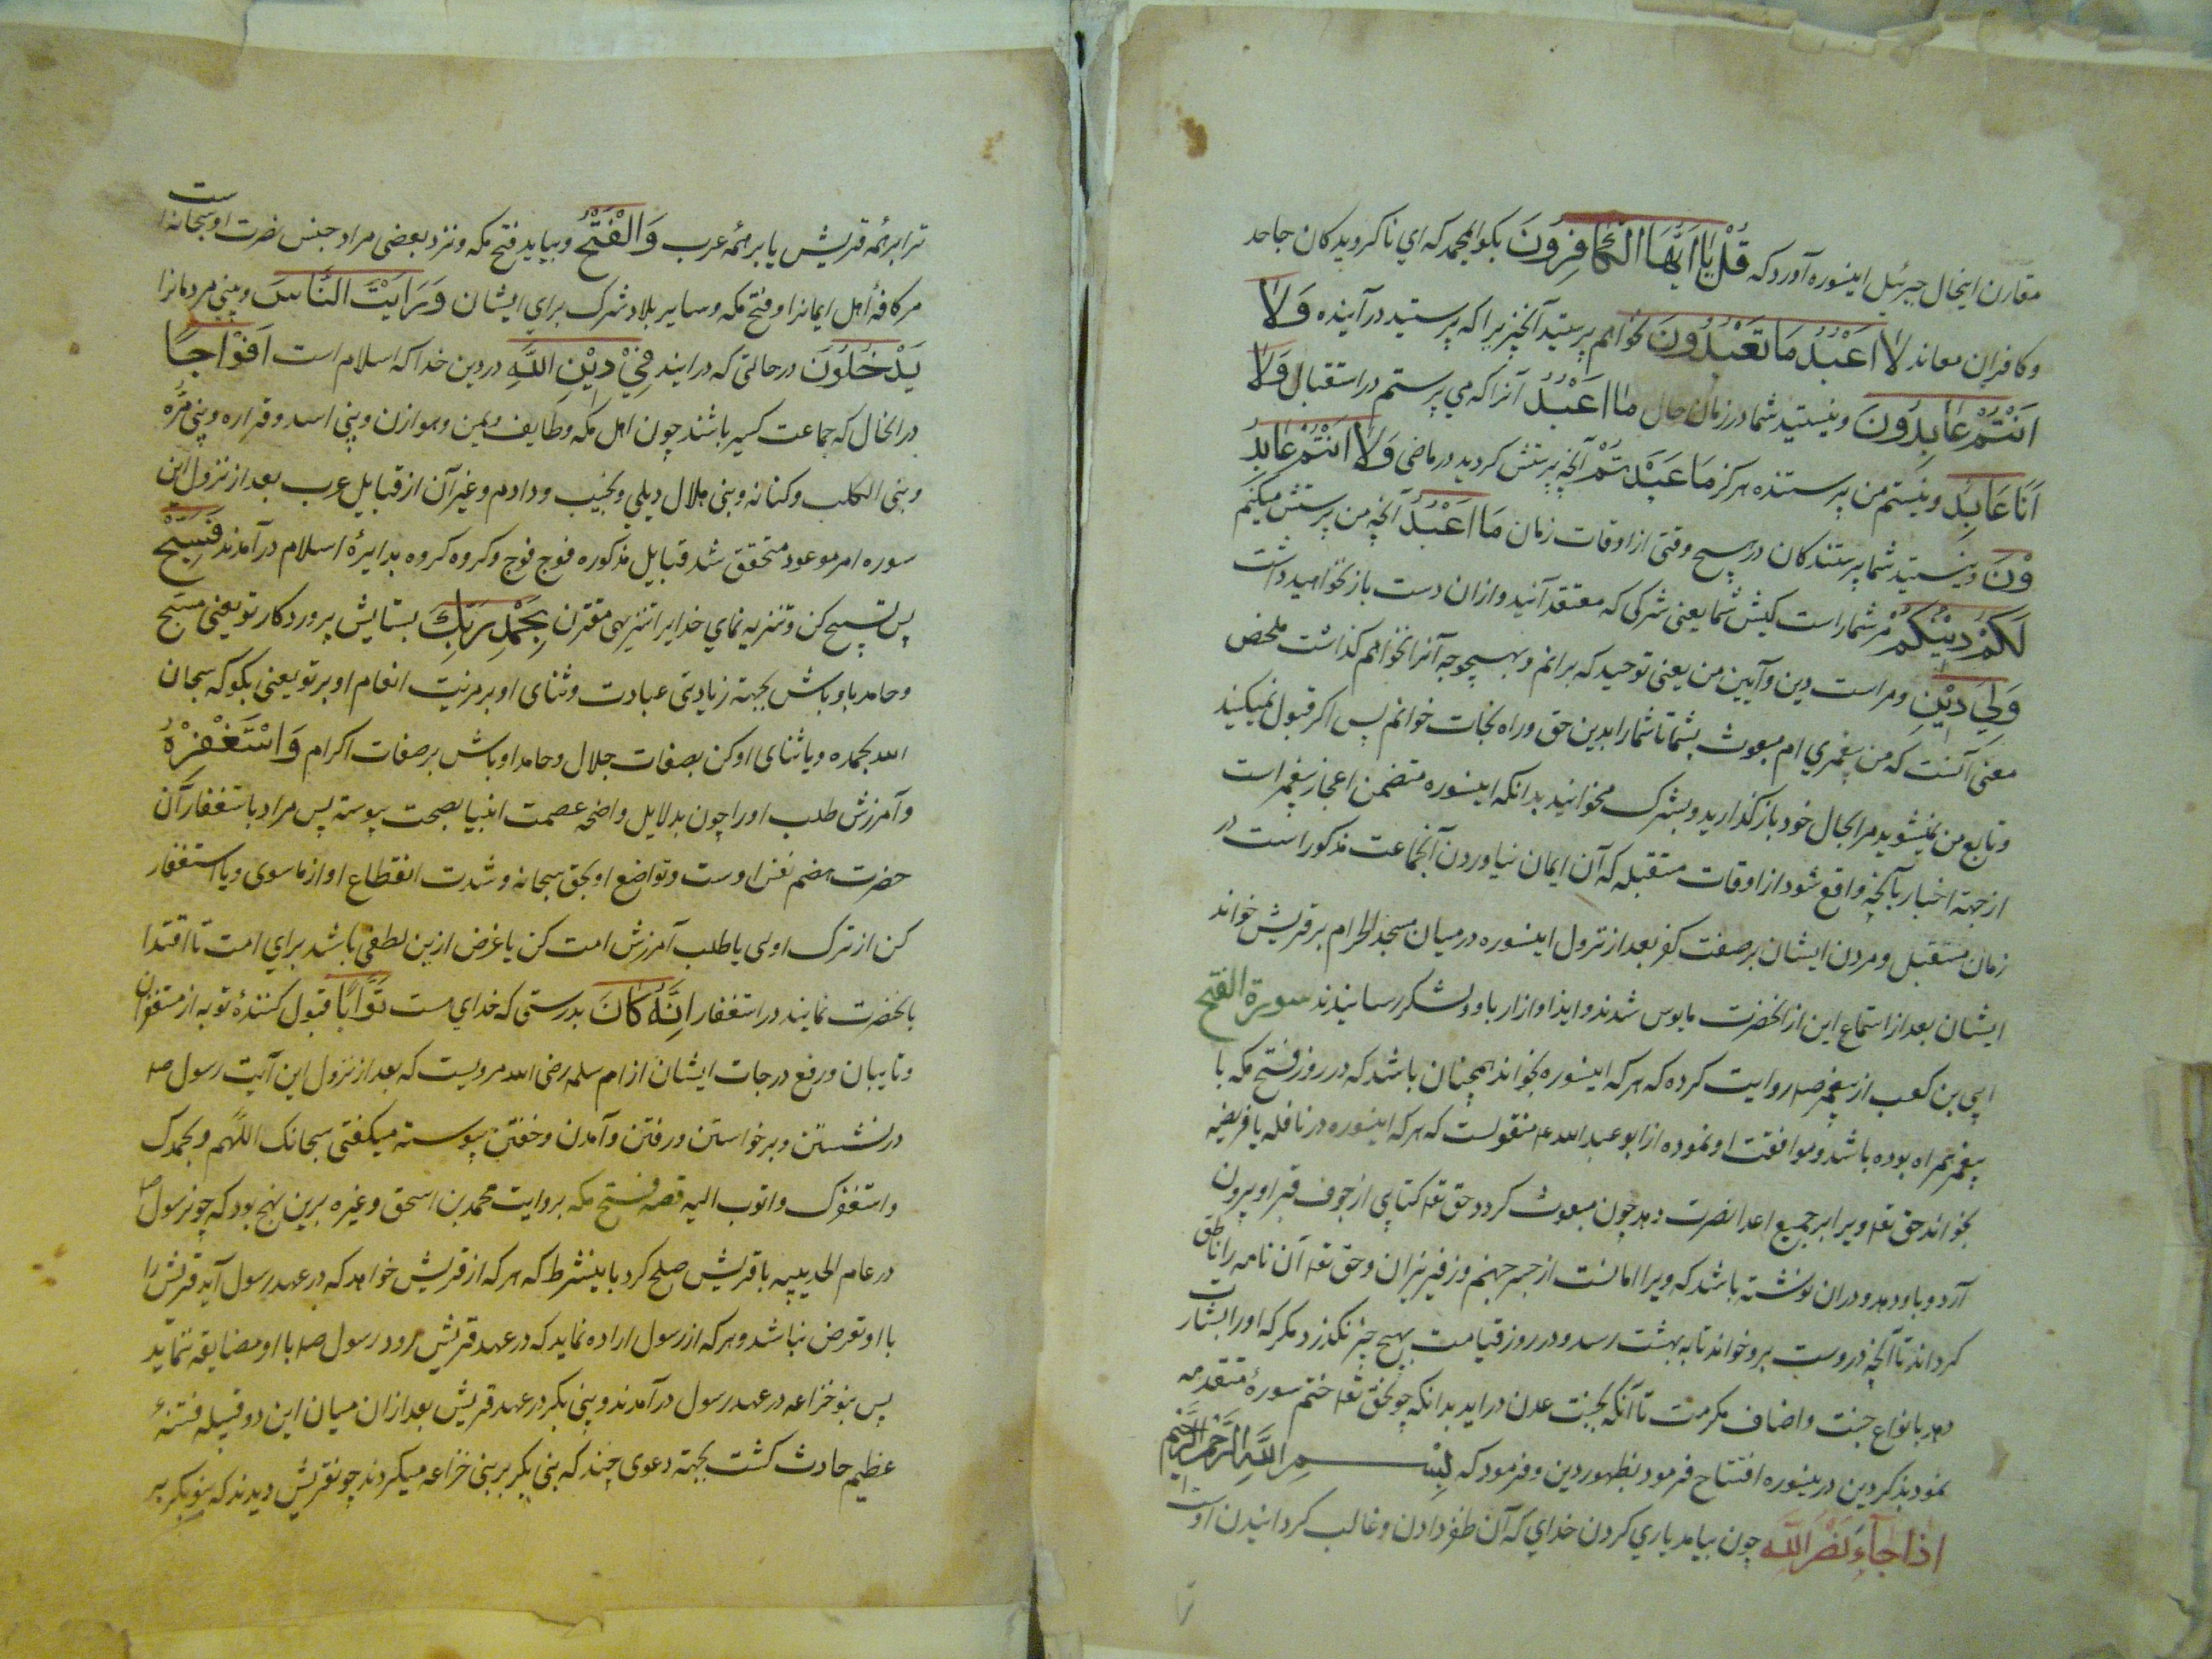 مقارن اینحال جبرئیل اینسوره آورد که قُلْ یَا اَیُّهَا الْکَافِرُونَ بکو ایمحمد که ای ناکرویدکان جاحد
وکافران معاند لَا اَعْبُدُ مَا تَعْبُدُونَ نخواهم پرستید آنچیزیرا که پرستید در آینده وَلَا
اَنْتُمْ عَابِدُونَ ونیستید شما در زمان حال مَا اَعْبُدُ آنرا که می پرستم در استقبال وَلَا
اَنَا عَابِدٌ ونیستم من پرستنده هرکز مَا عَبَدْتُمْ آنچه پرستش کردید در ماضی وَلَا اَنْتُمْ عَابِدُ
وْنَ ونیستید شما پرستندکان در هیچ وقتی از اوقات زمان مَا اَعْبُدُ آنچه من پرستش میکنم
لَکُمْ دِیْنُکُمْ مر شما راست کیش شما یعنی شرکی که معتقد آنید وازان دست باز نخواهید داشت
وَلِیَ دِیْنِ ومراست دین وآیین من یعنی توحید که برانم وبهیچوجه آنرا نخواهم کذاشت ملخص
معنی آنست که من پیغمبری ام مبعوث بشما تا شما را بدین حق وراه نجات خوانم پس اکر قبول نمیکنید
وتابع من نمیشوید مرا بحال خود باز کذارید وبشرک مخوانید بدانکه اینسوره متضمن اعجاز پیغمبر است
از جهة اخبار بآنچه واقع شود از اوقات مستقبله که آن ایمان نیاوردن آنجماعت مذکور است در
زمان مستقبل ومردن ایشان بر صفت کفر بعد از نزول اینسوره در میان مسجد الحرام بر قریش خواند
ایشان بعد از استماع این از آنحضرت مایوس شدند وایذا وازار باو ولشکر رسانیدند سورة الفتح
ابی بن کعب از پیغمبر صه روایت کرده که هر که اینسوره بخواند همچنان باشد که در روز فتح مکه با
پیغمبر همراه بوده باشد وموافقت او نموده از ابو عبدالله ع منقولست که هر که اینسوره در نافله یا فریضه
بخواند حق تعه ویرا بر جمیع اعدا نصرت دهد چون مبعوث کردد حق تعه کتابی از جوف قبر او بیرون
آرد وباو دهد ودران نوشته باشد که ویرا امانست از جسر جهنم وزفیر نیران وحق تعه آن نامه را ناطق
کرداند تا آنچه دروست برو خواند تا به بهشت رسد ودر روز قیامت بهیچ چیز نکذرد مکر که او را بشارت
دهد بانواع جنت واضاف مکرمت تا آنکه بجنت عدن دراید بدانکه چون حق تعه ختم سورهٔ متقدمه
نمود بذکر دین درینسوره افتتاح فرمود بظهور دین وفرمود که بِسْمِ اللّٰهِ الرَّحْمٰنِ الرَّحِیْمِ
اِذَا جَآءَ نَصْرُ اللّٰهِ چون بیامد یاری کردن خدای که آن ظفر دادن وغالب کردانیدن اوست
ترا بر همه قریش یا بر همه عرب وَالْفَتْحُ وبیاید فتح مکه ونزد بعضی مراد جنس نصرت او سبحانه است
مر کافهٔ اهل ایمانرا وفتح مکه وسایر بلاد شرک برای ایشان وَرَاَیْتَ النَّاسَ وبینی مردمانرا
یَدْخُلُوْنَ در حالتی که درایند فِیْ دِیْنِ اللّٰهِ در دین خدا که اسلام است اَفْوَاجًا
در انحال که جماعت کسیر باشند چون اهل مکه وطایف ویمن وهوازن وبنی اسد وقراره وبنی مُرّه
وبنی الکلب وکنانه وبنی هلال دیلی ونجیب ودادم وغیر آن از قبایل عرب بعد از نزول این
سوره امر موعود متحقق شد قبایل مذکوره فوج فوج وکروه کروه بدایرهٔ اسلام درآمدند فَسَبِّحْ
پس تسبیح کن وتنزیه نمای خدایرا تنزیهی مقترن بِحَمْدِ رَبِّکَ بستایش پروردکار تو یعنی مسبح
وحامد باو باش بجهة زیادتی عبادت وثنای او بر مزیت انعام او بر تو یعنی بکو که سبحان
الله بحمده ویا ثنای او کن بصفات جلال وحامد او باش بر صفات اکرام وَاسْتَغْفِرْهُ
وآمرزش طلب او را چون بدلایل واضحه عصمت انبیا بصحت پیوسته پس مراد باستغفار آن
حضرت هضم نفس اوست وتواضع او بحق سبحانه وشدت انقطاع او از ماسوی ویا استغفار
کن از ترک اولی یا طلب آمرزش امت کن یا غرض ازین لطفی باشد برای امت تا اقتدا
بانحضرت نمایند در استغفار اِنَّهُ کَانَ بدرستی که خدای هست تَوَّابًا قبول کنندهٔ توبه از مستغفران
وتایبان ورفع درجات ایشان از ام سلمه رضی الله مرویست که بعد از نزول این آیت رسول صه
در نشستن وبرخواستن ورفتن وآمدن وخفتن پیوسته میکفتی سبحانک اللّهم وبحمدک
واستغفرک واتوب الیه قصه فتح مکه بروایت محمد بن اسحق وغیره برین نهج بود که چون رسول صه
در عام الحدیبیه با قریش صلح کرد باینشرط که هر که از قریش خواهد که در عهد رسول آید قریش را
با او تعرض نباشد وهر که از رسول اراده نماید که در عهد قریش رود رسول صه با او مضایقه ننماید
پس بنو خزاعه در عهد رسول درآمدند وبنی بکر در عهد قریش بعد ازان میان این دو قبیله فتنهٔ
عظیم حادث کشت بجهة دعوی چند که بنی بکر بر بنی خزاعه میکردند چون قریش دیدند که بنو بکر بر